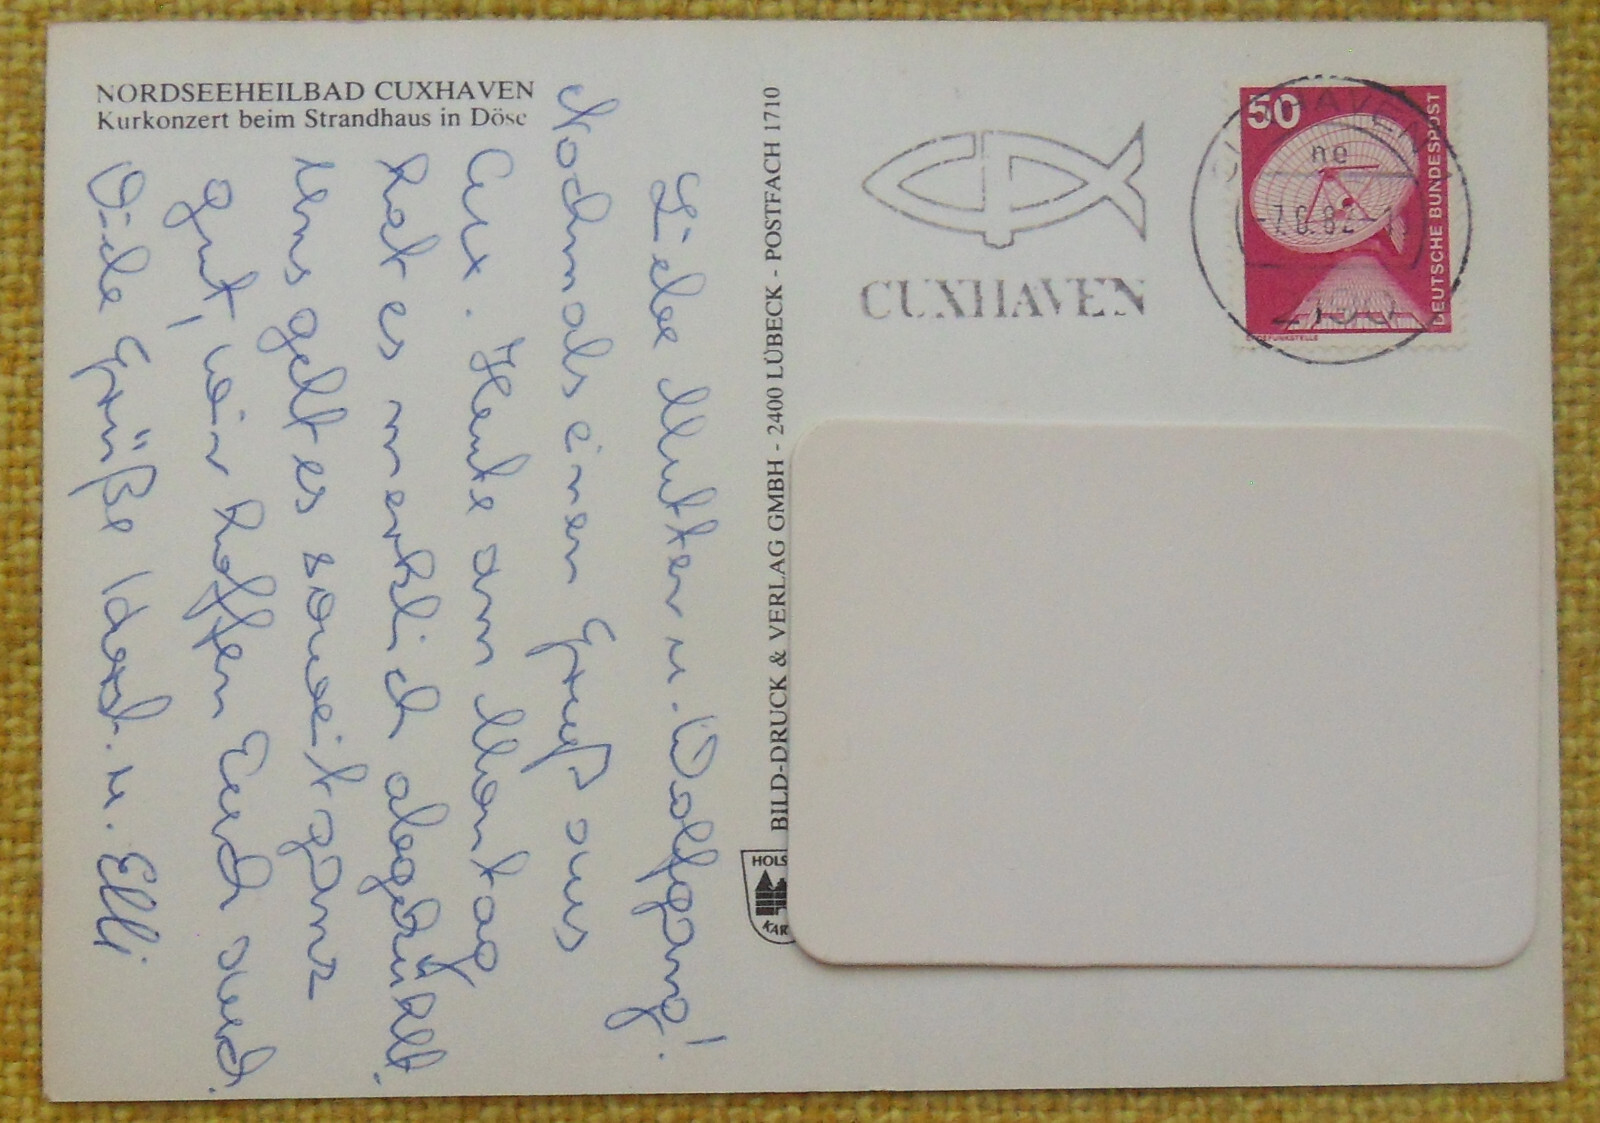 NORDSEEHEILBAD CUXHAVEN
Kurkonzert beim Strandhaus in Döse
Liebe Mutter u. Wolfgang!
Nochmals einen Gruß aus
Cux. Heute am Montag
hat es merklich abgekühlt.
Uns geht es soweit ganz
gut, wir hoffen Euch auch.
Viele Grüße Horst u. Elli
BILD-DRUCK & VERLAG GMBH - 2400 LÜBECK - POSTFACH 1710
HOLS
KAR
CUXHAVEN
CUXHAVEN
ne
-7.6.82
2190
50
DEUTSCHE BUNDESPOST
ERDEFUNKSTELLE